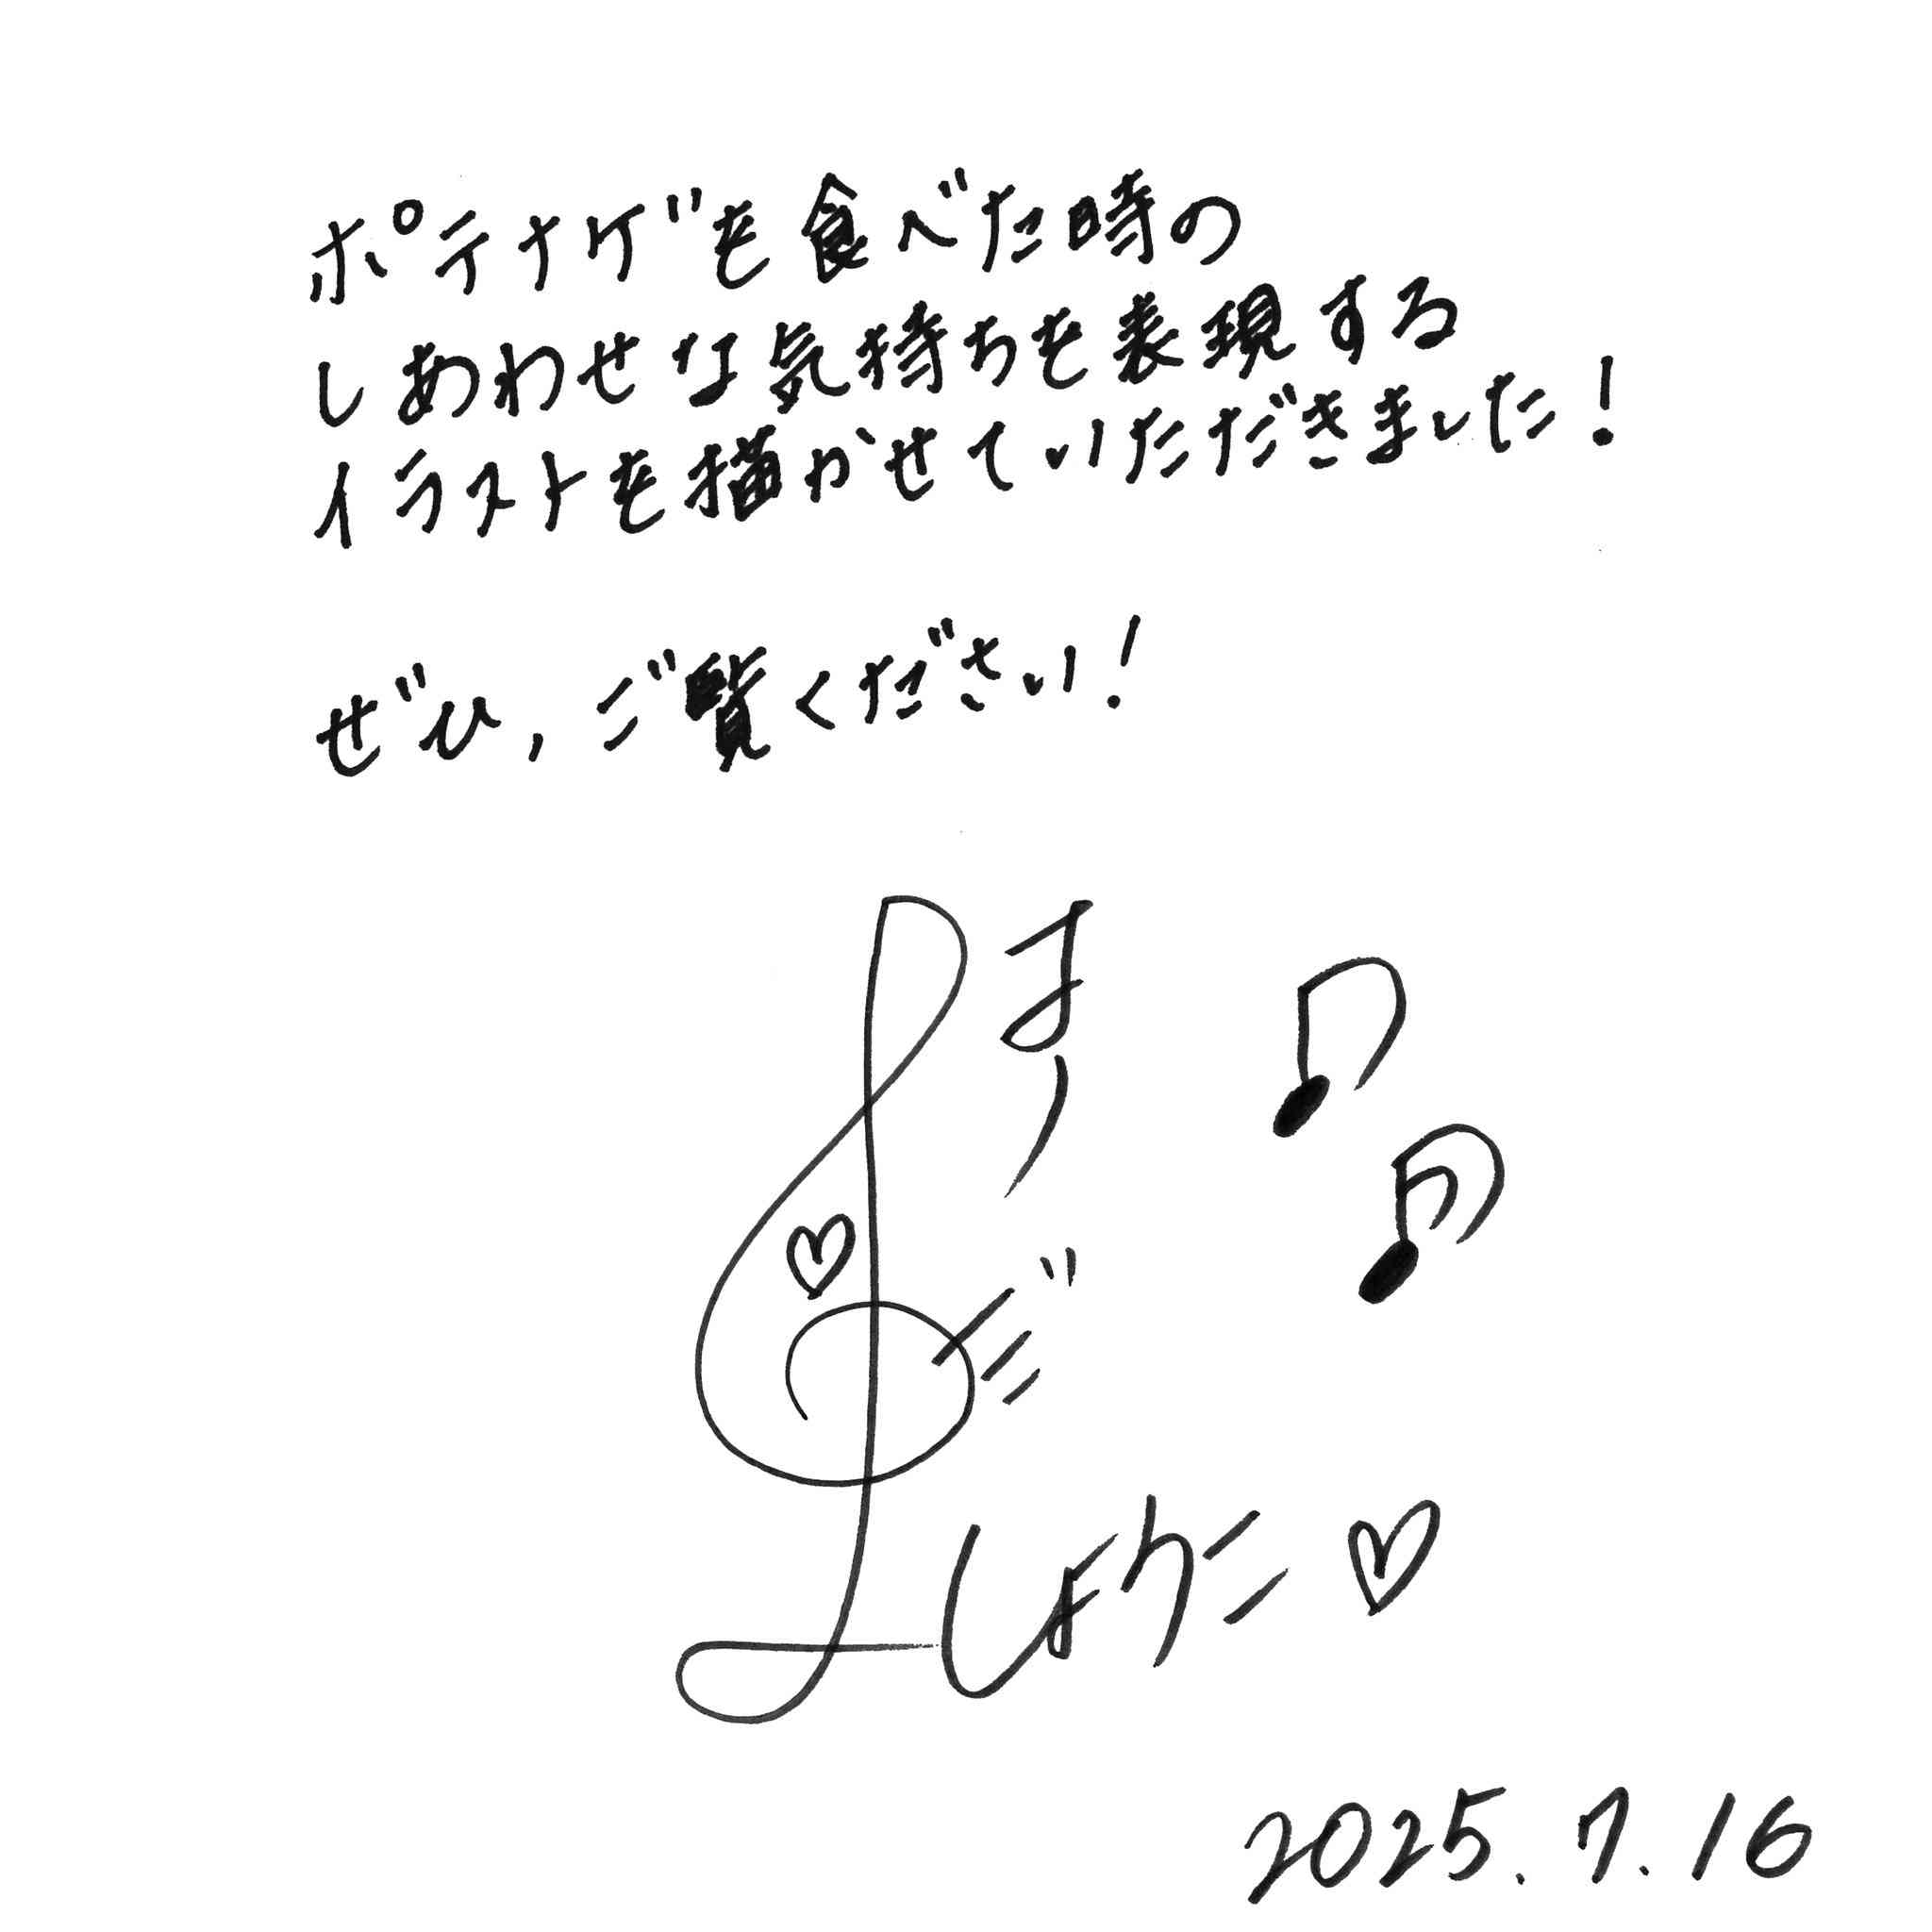 ポテナゲを食べた時の
しあわせな気持ちを表現する
イラストを描かせていただきました!
ぜひ,ご覧ください!
しょうこ♡
2025.7.16